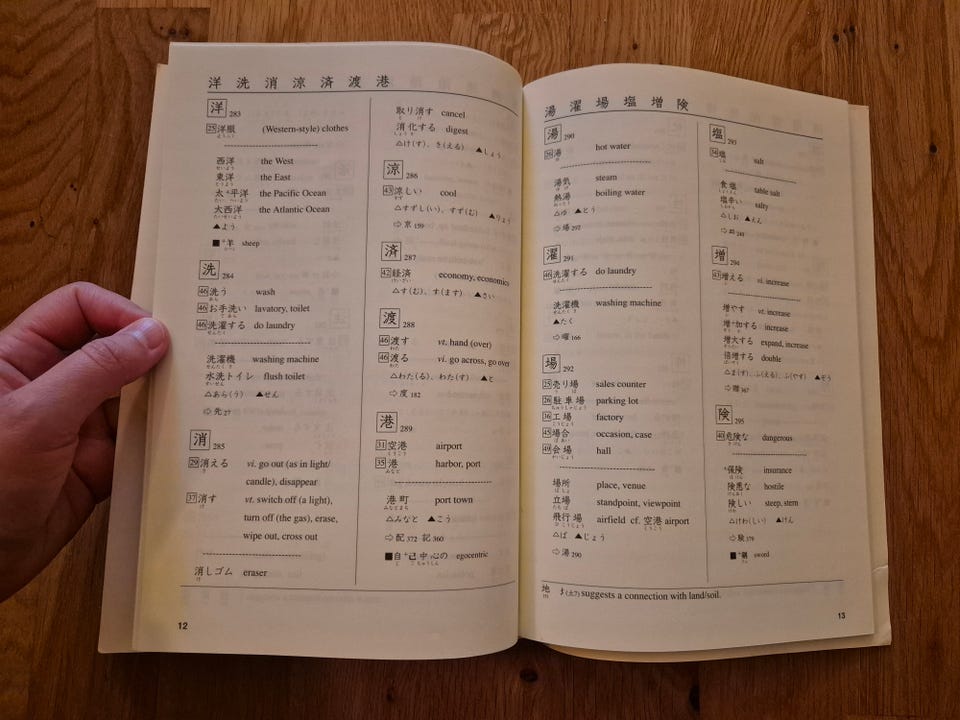 洋 洗 消 涼 済 渡 港
洋 283
25 洋服 (Western-style) clothes
ようふく
西洋 the West
せいよう
東洋 the East
とうよう
太+平洋 the Pacific Ocean
たい へいよう
大西洋 the Atlantic Ocean
たいせいよう
▲よう
■+羊 sheep
ひつじ
洗 284
46 洗う wash
あら
46 お手洗い lavatory, toilet
て あら
46 洗濯する do laundry
せんたく
洗濯機 washing machine
せんたく き
水洗トイレ flush toilet
すいせん
△あら(う) ▲せん
⇨先 27
消 285
29 消える vi. go out (as in light/
き
candle), disappear
37 消す vt. switch off (a light),
け
turn off (the gas), erase,
wipe out, cross out
消しゴム eraser
け
取り消す cancel
と け
消化する digest
しょうか
△け(す)、き(える) ▲しょう
涼 286
43 涼しい cool
すず
△すずし(い)、すず(む) ▲りょう
⇨京 159
済 287
42 経済 economy, economics
けいざい
△す(む)、す(ます) ▲さい
渡 288
46 渡す vt. hand (over)
わた
46 渡る vi. go across, go over
わた
△わた(る)、わた(す) ▲と
⇨度 182
港 289
31 空港 airport
くうこう
35 港 harbor, port
みなと
港町 port town
みなとまち
△みなと ▲こう
⇨配 372 記 360
■自+己中心の egocentric
じ こ ちゅうしん
12
湯 濯 場 塩 増 険
湯 290
26 湯 hot water
ゆ
湯気 steam
ゆ げ
熱湯 boiling water
ねっとう
△ゆ ▲とう
⇨場 292
濯 291
46 洗濯する do laundry
せんたく
洗濯機 washing machine
せんたく き
▲たく
⇨曜 166
場 292
25 売り場 sales counter
う ば
26 駐車場 parking lot
ちゅうしゃじょう
36 工場 factory
こうじょう
45 場合 occasion, case
ばあい
49 会場 hall
かいじょう
場所 place, venue
ばしょ
立場 standpoint, viewpoint
たちば
飛行場 airfield cf. 空港 airport
ひ こうじょう くうこう
△ば ▲じょう
⇨湯 290
塩 293
34 塩 salt
しお
食塩 table salt
しょくえん
塩辛い salty
しおから
△しお ▲えん
増 294
43 増える vi. increase
ふ
増やす vt. increase
ふ
増+加する increase
ぞう か
増大する expand, increase
ぞうだい
倍増する double
ばいぞう
△ま(す)、ふ(える)、ふ(やす) ▲ぞう
険 295
40 危険な dangerous
きけん
+保険 insurance
ほけん
険悪な hostile
けんあく
険しい steep, stern
けわ
△けわ(しい) ▲けん
⇨験 379
sword
suggests a connection with land/soil.
13